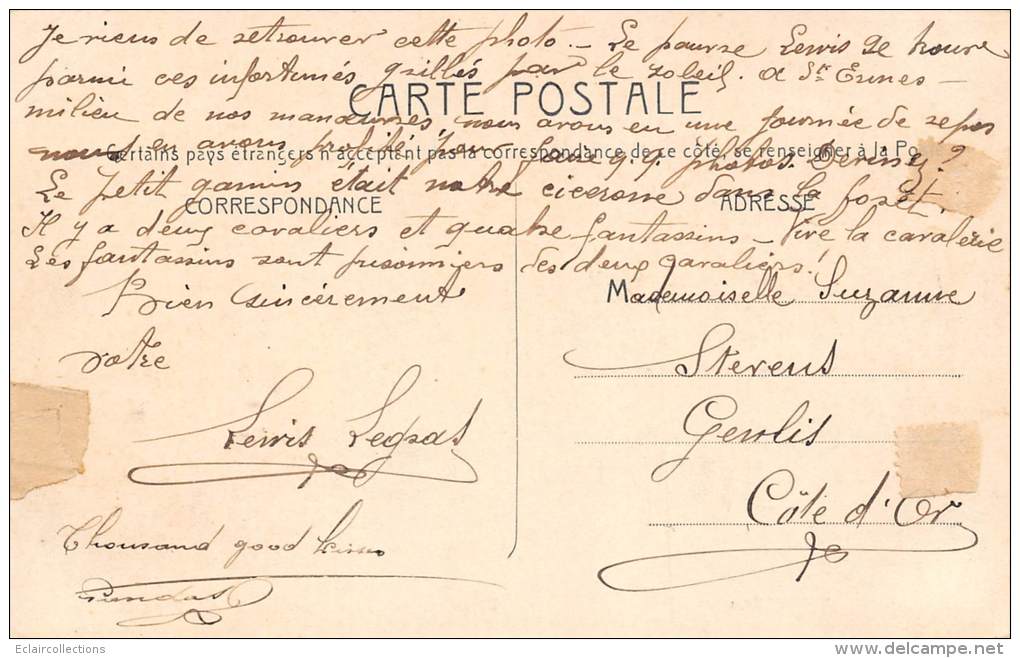 Je viens de retrouver cette photo. – Le pauvre Lewis se trouve
parmi ces infortunés grillés par le soleil. à
milieu de nos manœuvres, nous avons eu une journée de repos
CARTE POSTALE
nous en avons profité pour faire qq photos.
Certains pays étrangers n'acceptent pas la correspondance de ce côté, se renseigner à la Po
Le petit gamin était notre cicerone dans la forêt.
CORRESPONDANCE
ADRESSE
Il y a deux cavaliers et quatre fantassins – Vive la cavalerie
Les fantassins sont prisonniers des deux cavaliers!
Bien sincèrement
votre
Lewis
Thousand good kisses
Mademoiselle Suzanne
Stevens
Genlis
Côte d'Or
Eclaircollections
delcampe.net